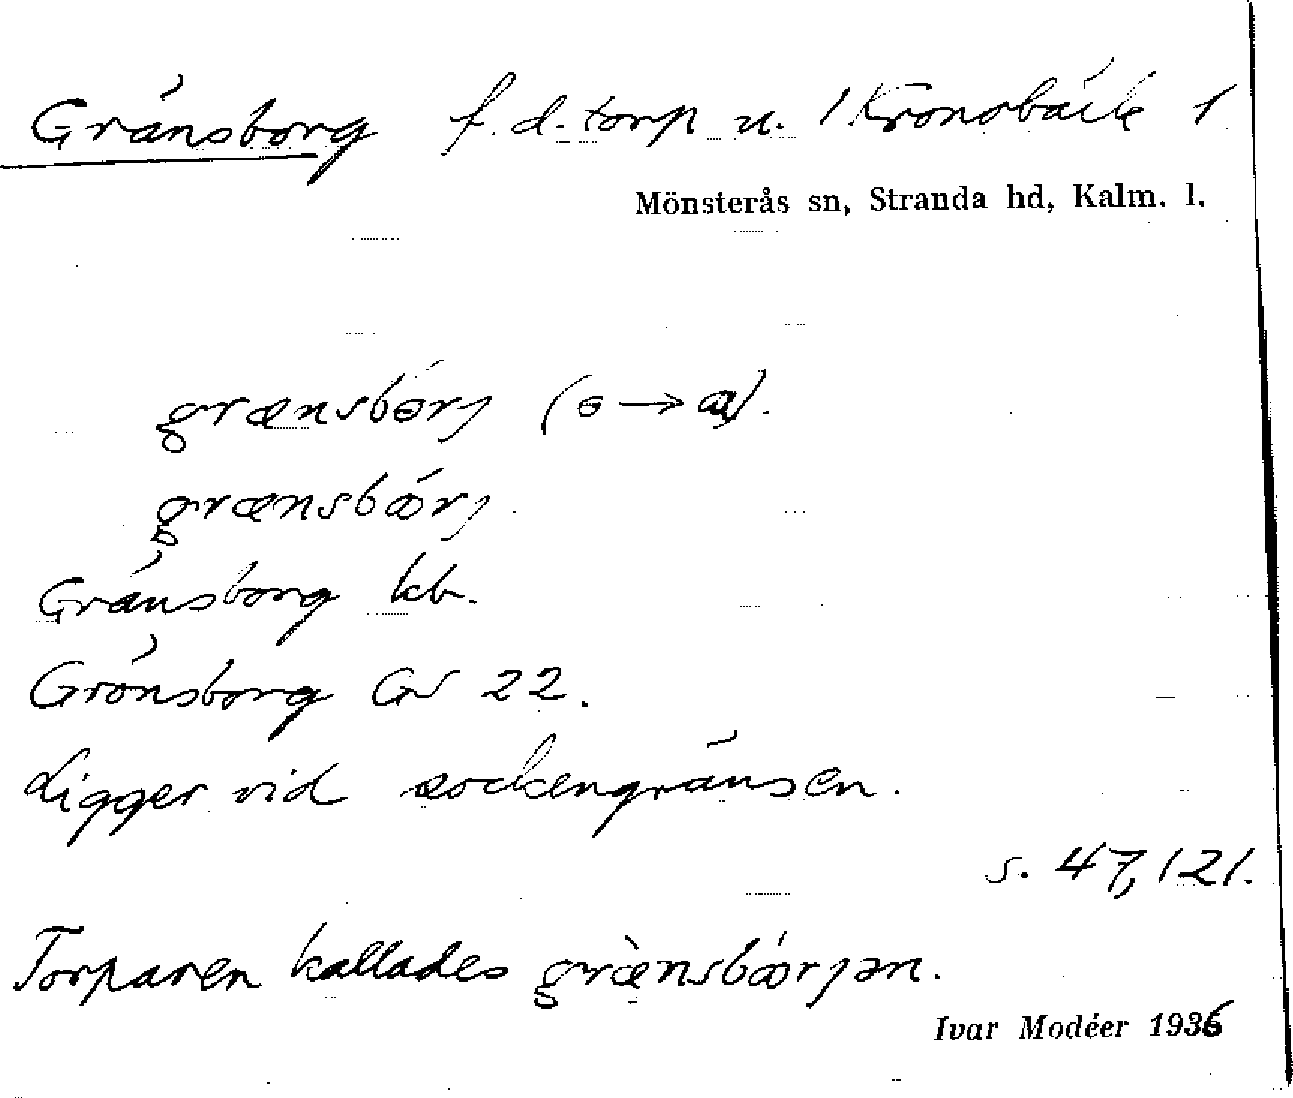 Gränsborg f.d. torp u. /Kronobäck 1
Mönsterås sn, Stranda hd, Kalm. l.
grænsbɵrj (ɵ → ꝏ).
grænsbꝏ́rj
Gränsborg kb.
Grönsborg GS 22.
Ligger vid sockengränsen.
s. 47, 121.
Torparen kallades græ̀nsbꝏ́rjən.
Ivar Modéer 1936